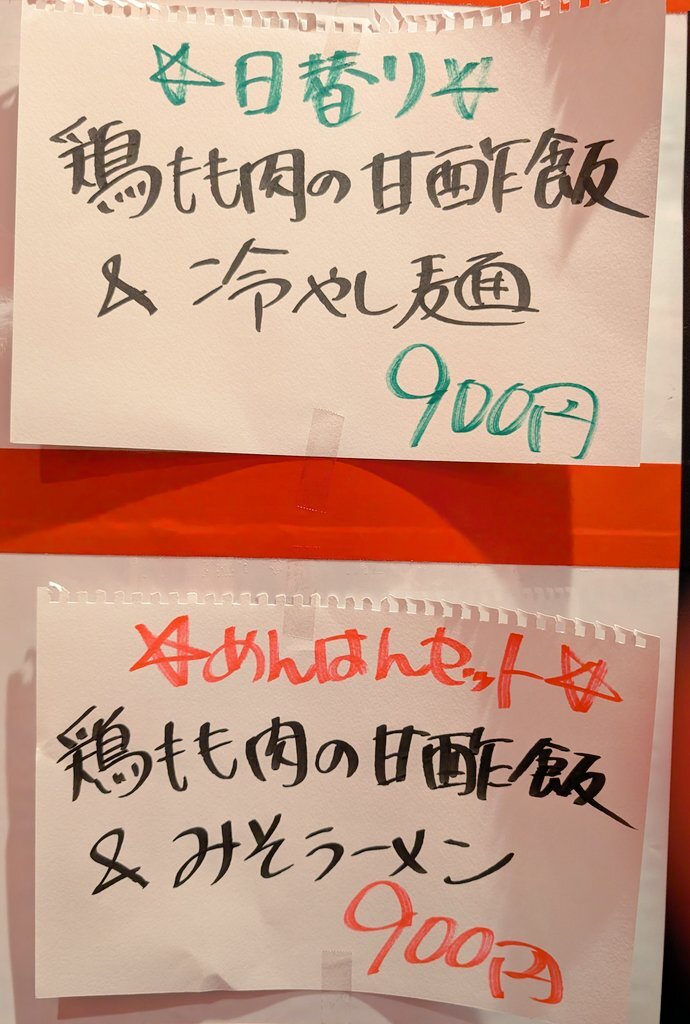 ☆日替り☆
鶏もも肉の甘酢飯
& 冷やし麺
900円
☆めんはんセット☆
鶏もも肉の甘酢飯
& みそラーメン
900円